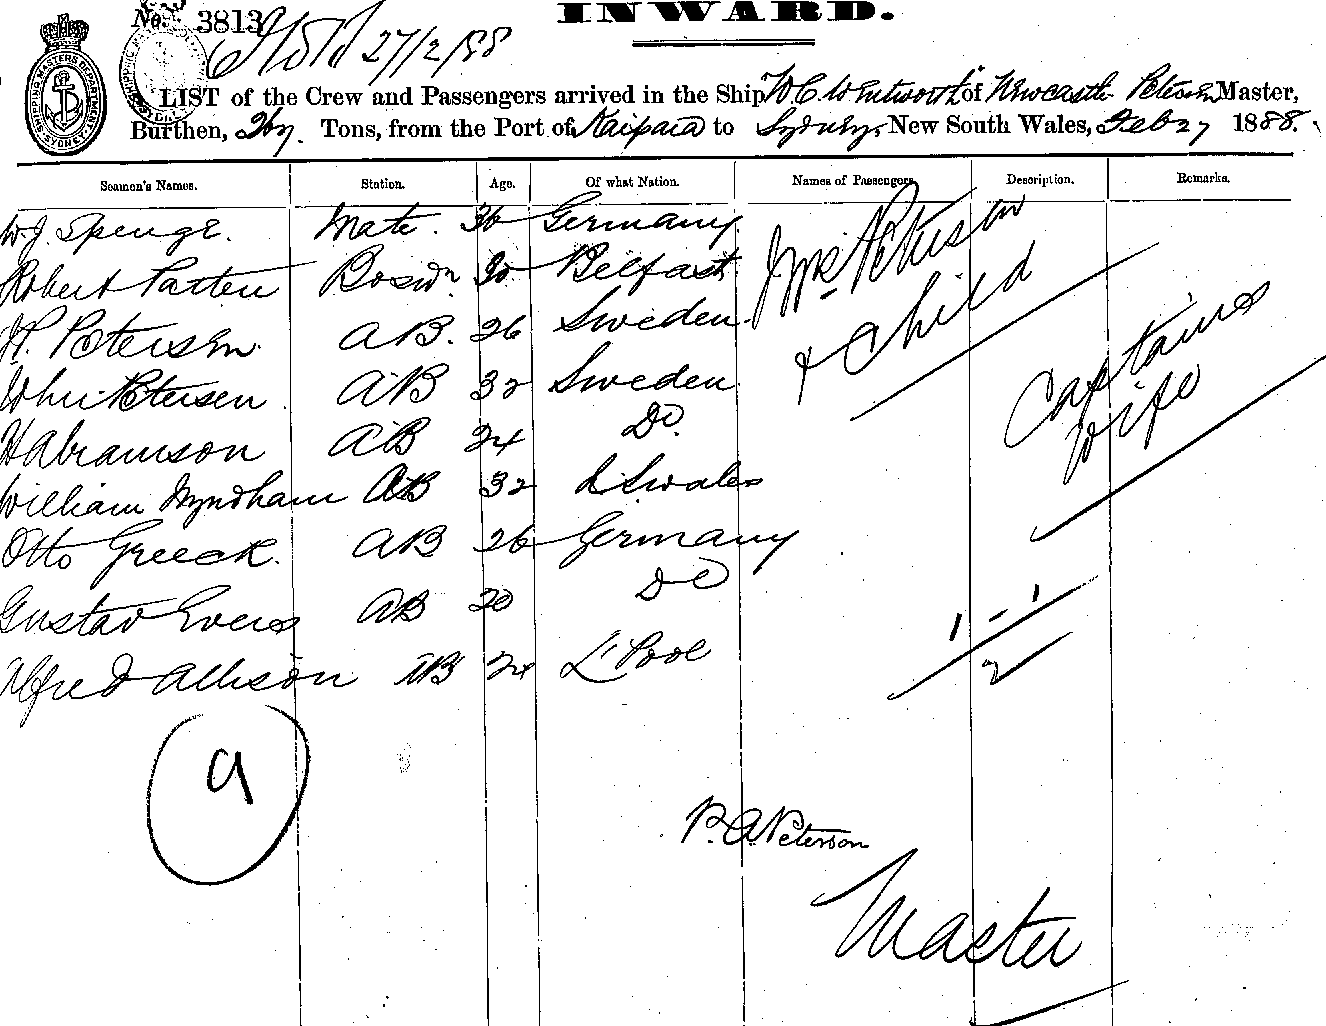 INWARD.
No. 3813
27/2/88
SHIPPING MASTERS DEPARTMENT SYDNEY
LIST of the Crew and Passengers arrived in the Ship "W. C. Wentworth" of Newcastle Petersen Master,
Burthen, Tons, from the Port of Kaipara to Sydney, New South Wales, Feb 27 1888.
Seamen's Names. Station. Age. Of what Nation. Names of Passengers. Description. Remarks.
W. J. Spenge. Mate. 36 Germany Mrs Petersen
Robert Patten Boswn. 30 Belfast & Child
H. Petersen. AB. 26 Sweden Captains
Petersen AB 32 Sweden wife
Habramson AB 24 Do.
William Wyndham AB 32 Swales
Otto Greeck. AB 26 Germany
Gustav Evers AB 20 Do 1 - 1
Alfred Allison AB 24 L'Pool 2
9
P. A. Peterson
Master